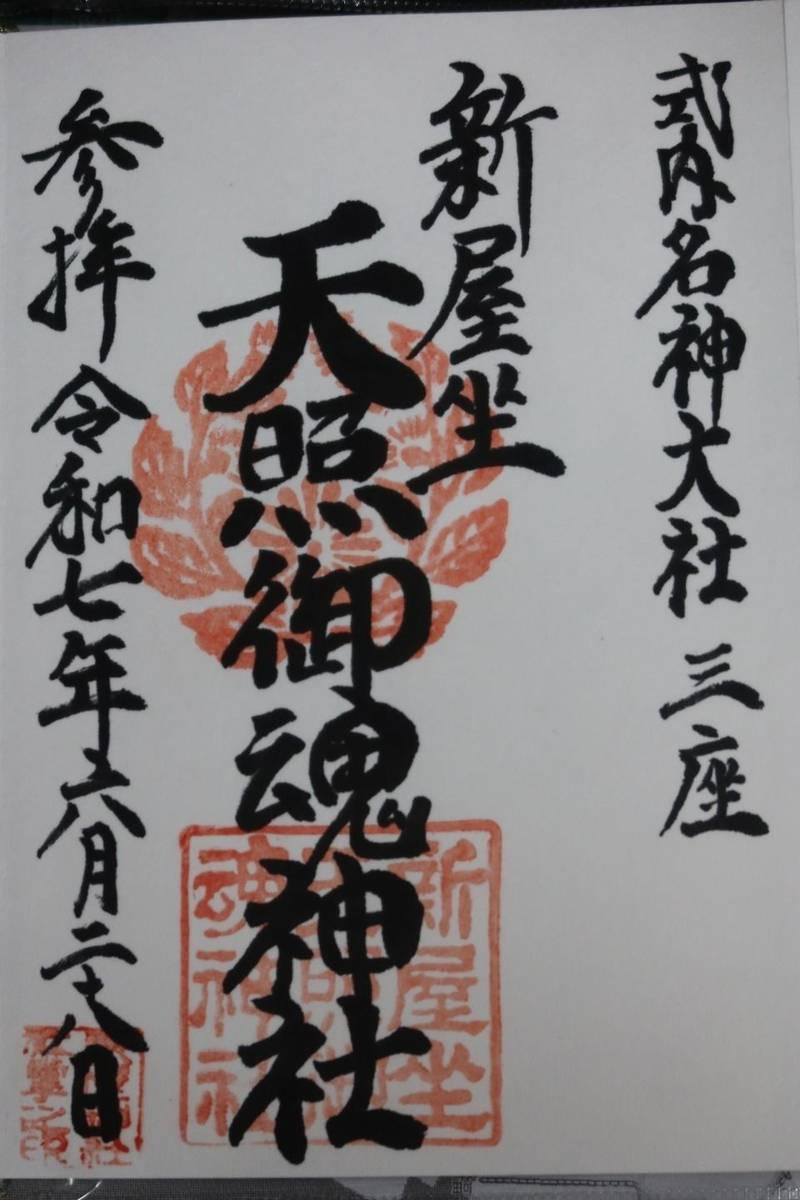 式内名神大社 三座
新屋坐
天照御魂神社
参拝 令和七年六月二十八日
新屋坐
魂神社